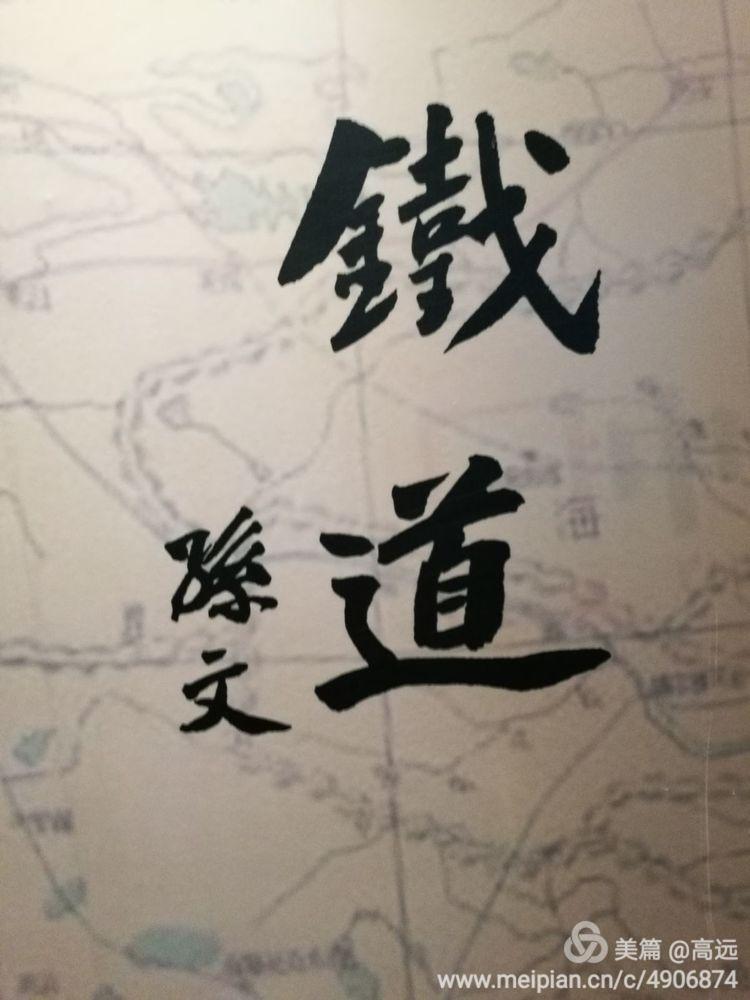 鐵道
孫文
海
美篇 @高远
www.meipian.cn/c/4906874